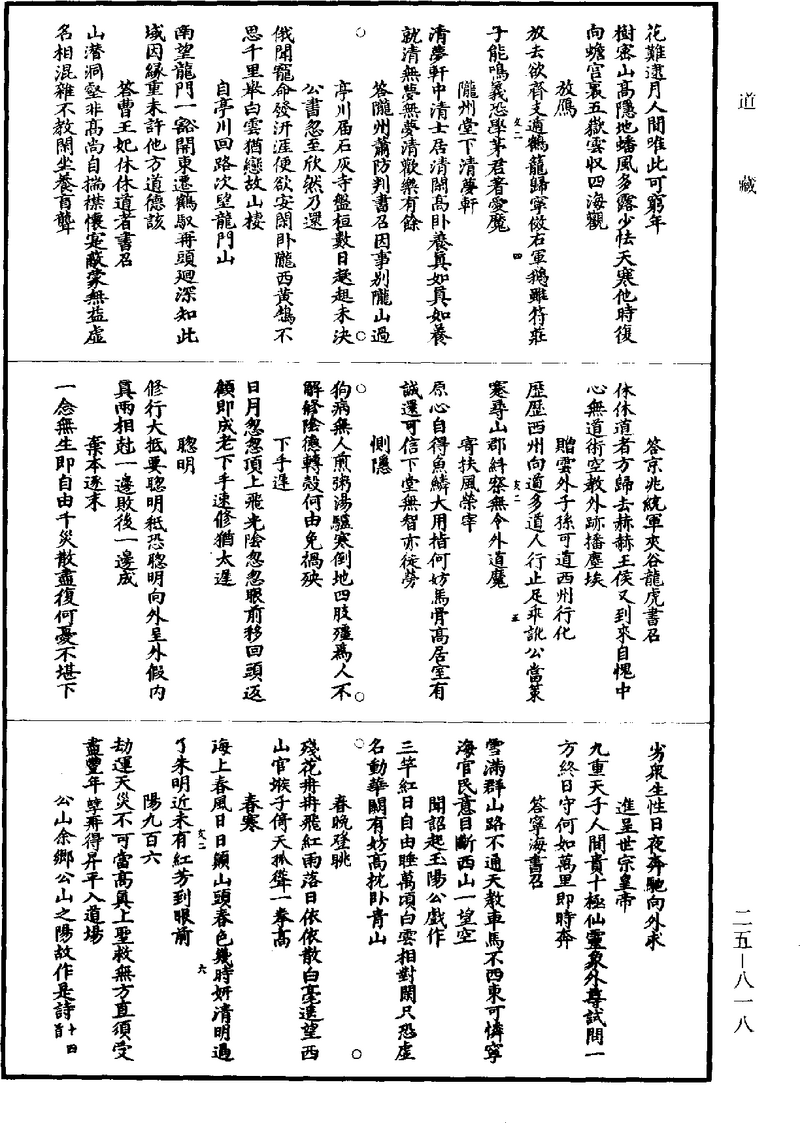 道藏
花難逮月人間唯此可窮年
樹密山高隱地蟠風多露少怯天寒他時復
向蟾宮裏五嶽雲収四海觀
放鴈
放去欲齊支遁鶴龍歸寧倣右軍鵝雖符莊
子能鳴義恐學茅君者愛魔
隴州堂下清夢軒
清夢軒中清士居清閑高卧養真如真如養
就清無夢無夢清歡樂有餘
答隴州蕭防判書召因事別隴山過
亭川屆石灰寺盤桓數日趑趄未決
公書忽至欣然乃還
俄聞寵命發汧涯便欲安閑卧隴西黃鵠不
思千里舉白雲猶戀故山棲
自亭川回路次望龍門山
南望龍門一豁開東遷鶴馭再頭迴深知此
域因緣重未許他方道德該
答曹王妃休休道者書召
山潛洞壑非高尚自揣襟懷寔蔽蒙無益虛
名相混雜不教閑坐養盲聾
答京兆統軍夾谷龍虎書召
休休道者方歸去赫赫王侯又到來自愧中
心無道術空教外跡播塵埃
贈雲外子孫可道西州行化
歷歷西州向道多道人行止足乖訛公當策
蹇尋山郡糾察無令外道魔
寄扶風榮宰
原心自得魚鱗大用指何妨馬骨高居室有
誠還可信下堂無智亦徒勞
惻隱
狗病無人煎粥湯驢寒倒地四肢殭為人不
解修陰德轉殼何由免禍殃
下手遲
日月忽忽頂上飛光陰忽忽眼前移回頭返
顧即成老下手速修猶太遲
聰明
修行大抵要聰明秖恐聰明向外呈外假內
真兩相尅一邊敗後一邊成
棄本逐末
一念無生即自由千災散盡復何憂不堪下
劣眾生性日夜奔馳向外求
進呈世宗皇帝
九重天子人間貴十極仙靈象外尊試問一
方終日守何如萬里即時奔
答寧海書召
雪滿群山路不通天教車馬不西東可憐寧
海官民意目斷西山一望空
聞詔起玉陽公戲作
三竿紅日自由睡萬頃白雲相對閑只恐虛
名動華闕有妨高枕卧青山
春晚登眺
殘花冉冉飛紅雨落日依依散白毫遙望西
山官堠子倚天孤聳一拳高
春寒
海上春風日日顛山頭春色幾時妍清明過
了朱明近未有紅芳到眼前
陽九百六
劫運天災不可當高真上聖救無方直須受
盡豐年孽再得昇平入道場
公山余鄉公山之陽故作是詩十四首
二五—八一八